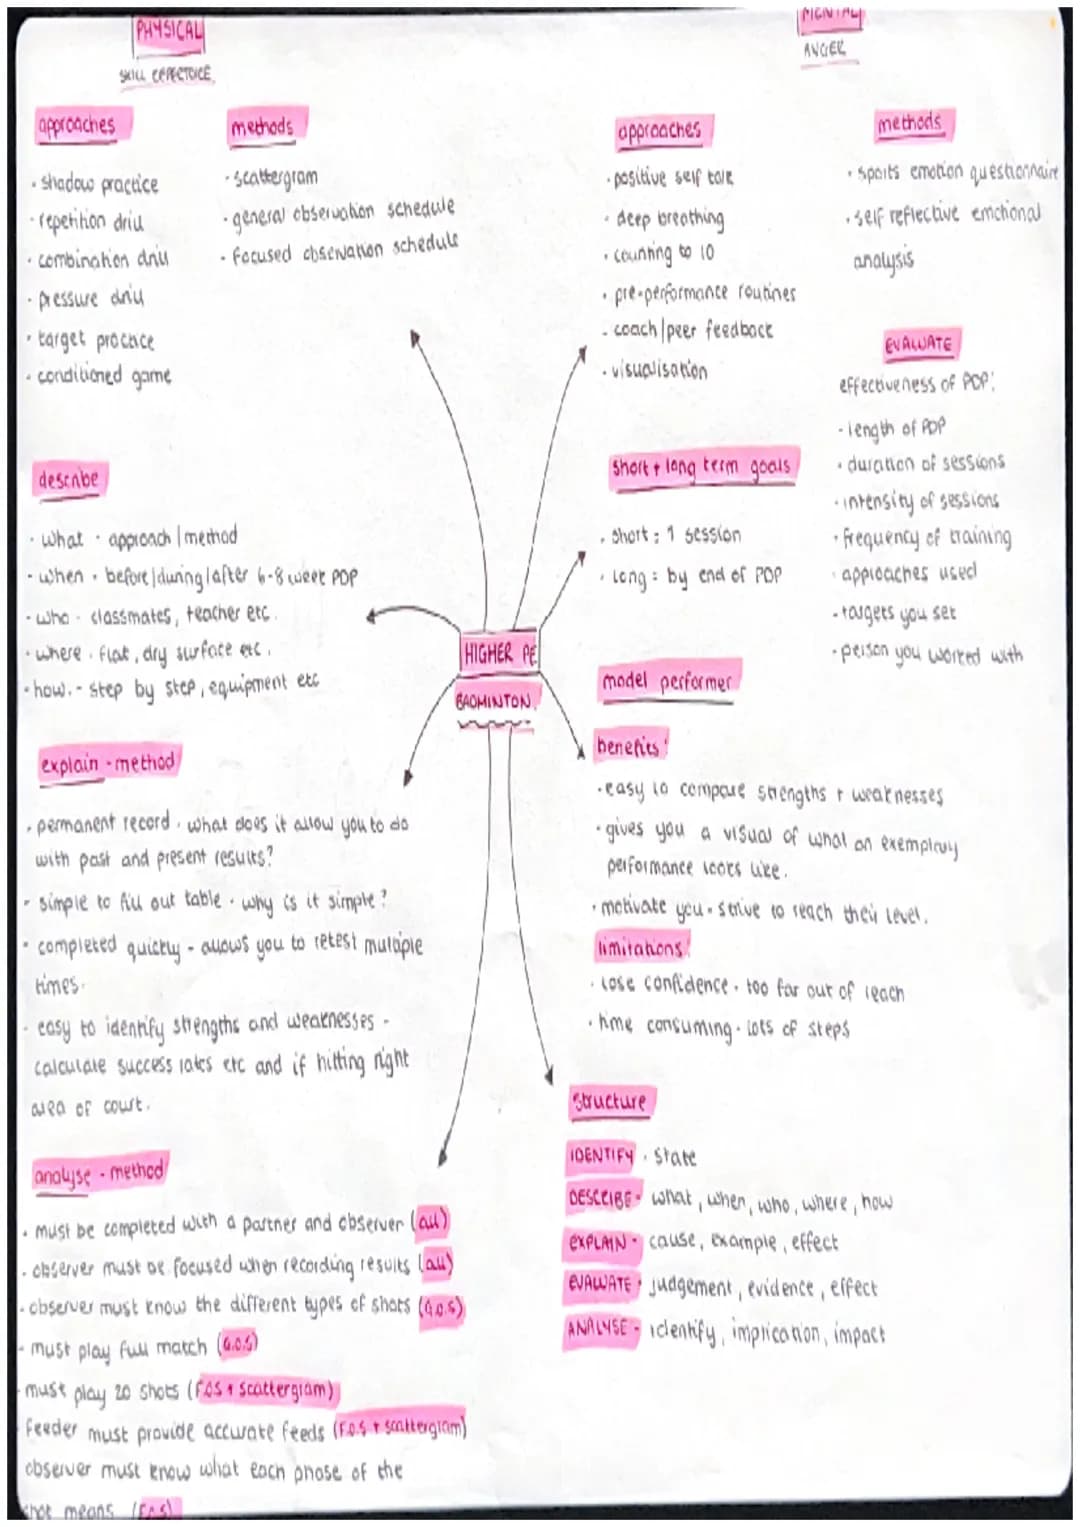 PHYSICAL
SKILL REPERTOIRE
approaches
· shadow practice
· repetition drill
· combination drill
· pressure drill
· target practice
· conditioned game
methods
· scattergram
· general observation schedule
· focused observation schedule
MENTAL
ANGER
approaches
· positive self talk
· deep breathing
· counting to 10
· pre-performance routines
- coach/peer feedback
· visualisation
methods
· sports emotion questionnaire
· self reflective emotional
analysis
EVALUATE
effectiveness of PDP:
- length of PDP
· duration of sessions
· intensity of sessions
· frequency of training
· approaches used
- targets you set
· person you worked with
short + long term goals
· short: 1 session
· long: by end of PDP
describe
· what · approach/method
· when · before/during/after 6-8 week PDP
· who · classmates, teacher etc.
· where · flat, dry surface etc.
· how. - step by step, equipment etc
HIGHER PE
BADMINTON.
model performer
benefits:
· easy to compare strengths + weaknesses
· gives you a visual of what an exemplary
performance looks like.
· motivate you - strive to reach their level.
limitations:
· lose confidence - too far out of reach
· time consuming - lots of steps
explain - method
· permanent record · what does it allow you to do
with past and present results?
· simple to fill out table · why is it simple?
· completed quickly - allows you to retest multiple
times.
· easy to identify strengths and weaknesses -
calculate success rates etc and if hitting right
area of court.
analyse - method
· must be completed with a partner and observer (all)
· observer must be focused when recording results (all)
· observer must know the different types of shots (G.O.S)
- must play full match (G.O.S)
must play 20 shots (F.O.S + scattergram)
feeder must provide accurate feeds (F.O.S + scattergram)
observer must know what each phase of the
shot means (F.O.S)
structure
IDENTIFY · state
DESCRIBE - what, when, who, where, how
EXPLAIN - cause, example, effect
EVALUATE · judgement, evidence, effect
ANALYSE - identify, implication, impact